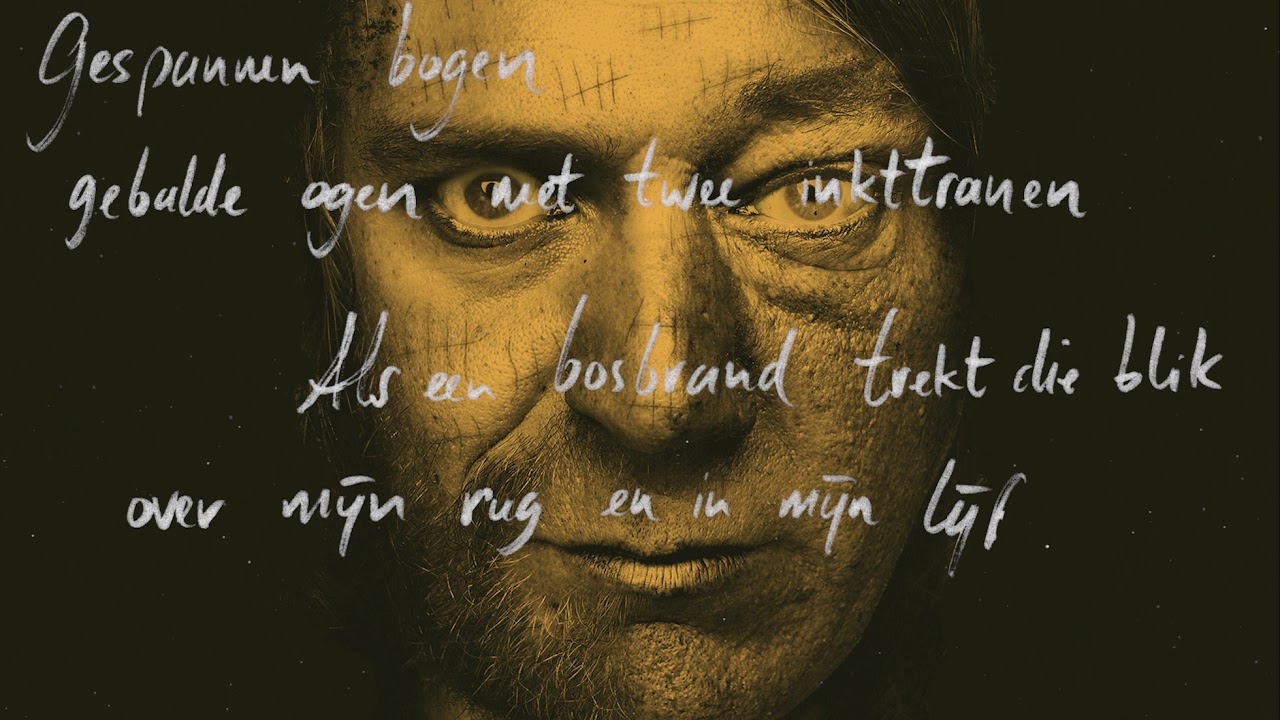 Gespannen bogen
gebalde ogen met twee inkttranen
Als een bosbrand trekt die blik
over mijn rug en in mijn lijf